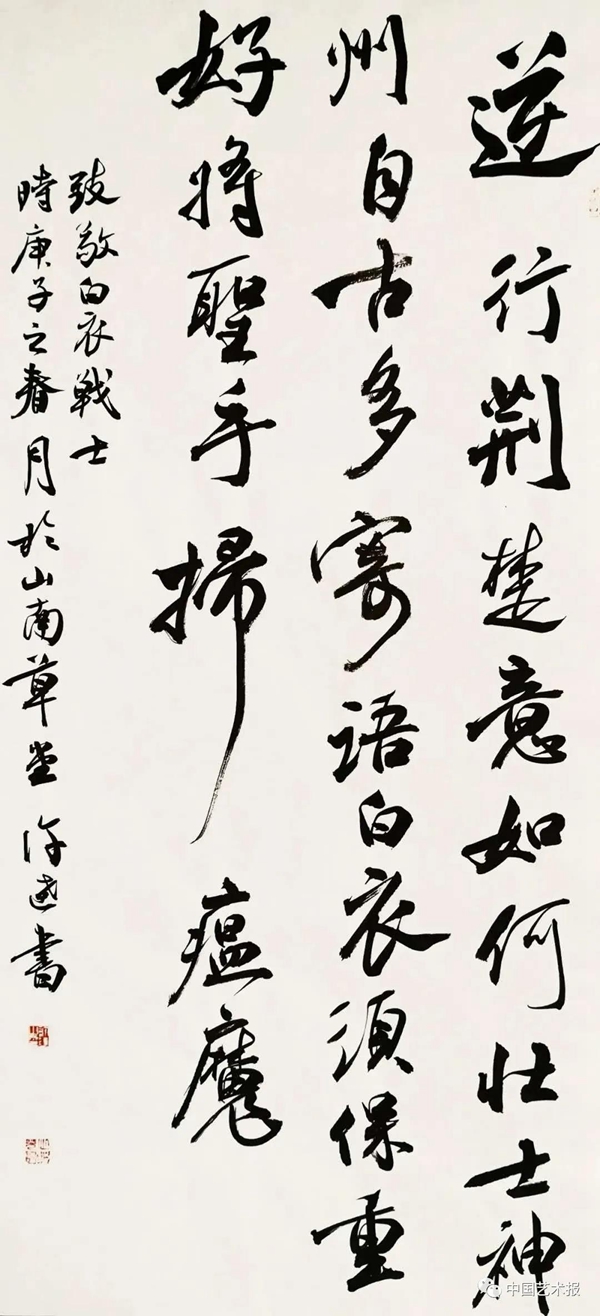 逆行荆楚意如何壮士神
州自古多寄语白衣须保重
好将聖手掃瘟魔
致敬白衣戰士
時庚子之春月於山南草堂 许达書
中国艺术报